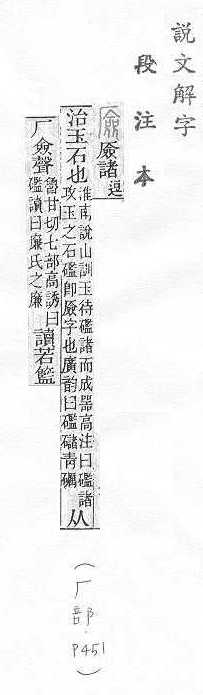 說文解字
段注本
厱諸逗
治玉石也淮南說山訓玉待礛諸而成器高注曰礛諸
攻玉之石礛卽厱字也廣韵曰礛䃴靑礪从
厂僉聲魯甘切七部高誘曰
礛讀曰廉氏之廉讀若籃
(厂部.P451)